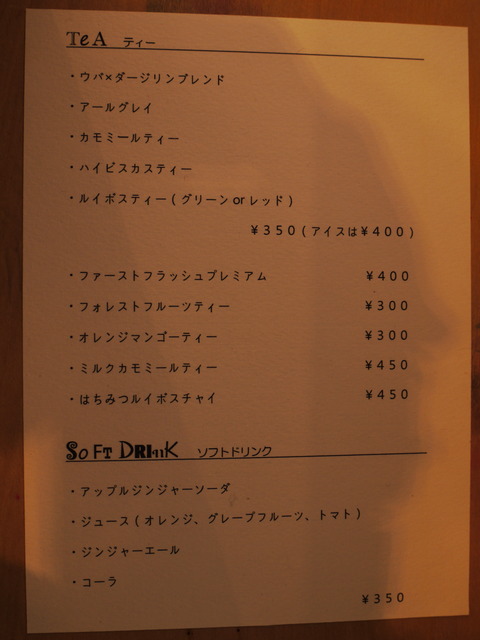 TeA ティー
・ウバ×ダージリンブレンド
・アールグレイ
・カモミールティー
・ハイビスカスティー
・ルイボスティー(グリーンorレッド)
¥350(アイスは¥400)
・ファーストフラッシュプレミアム ¥400
・フォレストフルーツティー ¥300
・オレンジマンゴーティー ¥300
・ミルクカモミールティー ¥450
・はちみつルイボスチャイ ¥450
SoFT DRInK ソフトドリンク
・アップルジンジャーソーダ
・ジュース(オレンジ、グレープフルーツ、トマト)
・ジンジャーエール
・コーラ
¥350